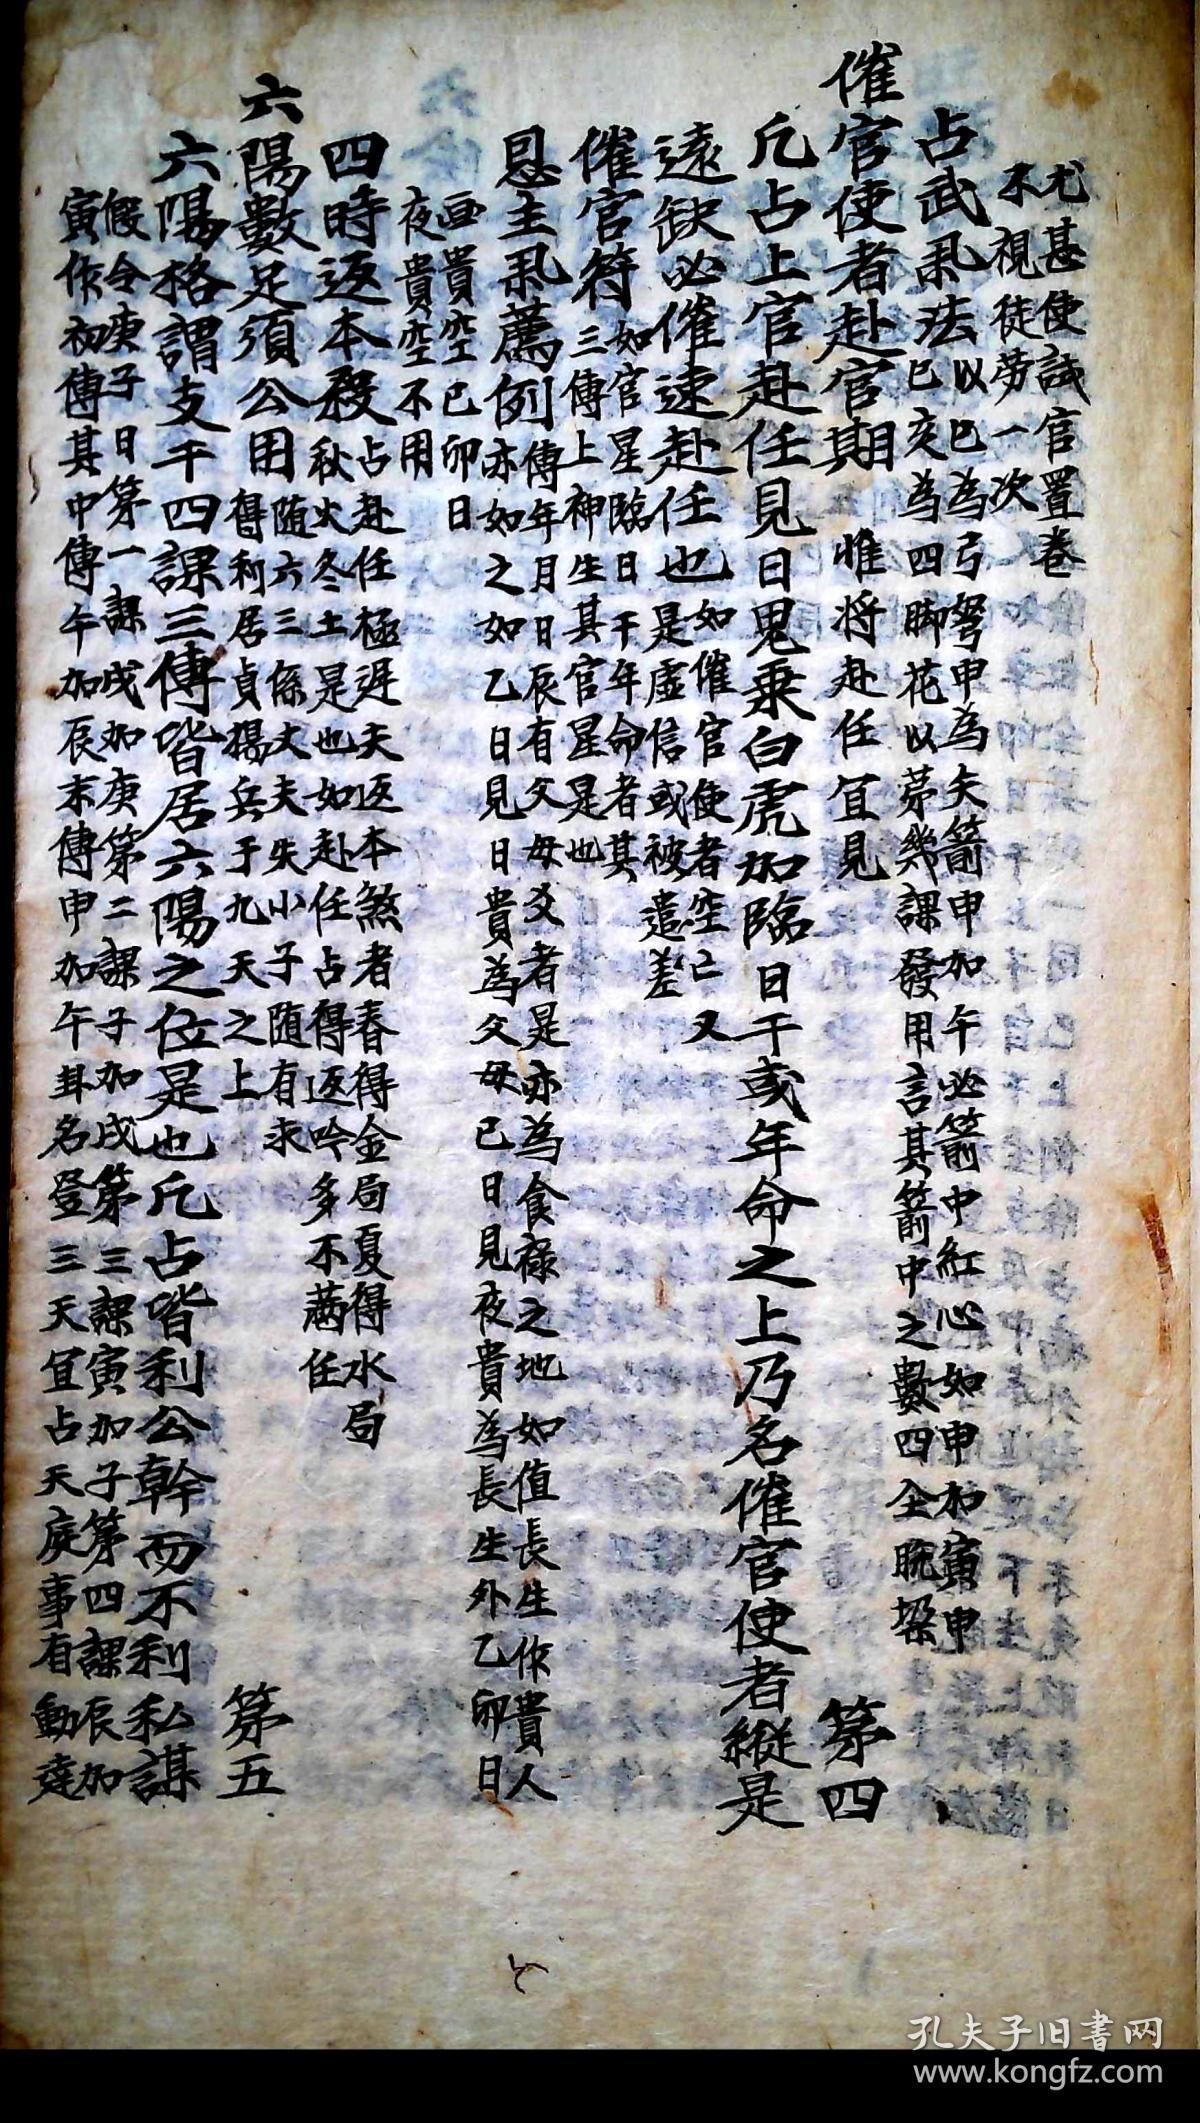 尤甚使試官置卷
不視徒劳一次
占武㐧法以巳為弓弩申為矢箭申加午必箭中紅心如申加寅申
巳亥為四脚花以苐幾課發用言其箭中之數四全脱垜
催官使者赴官期 惟将赴任宜見 苐四
凢占上官赴任見日鬼乗白虎加臨日干或年命之上乃名催官使者縱是
遠缺必催速赴任也如催官使者空亡又
是虛信或被遣差
催官符如官星臨日干年命者其
三傳上神生其官星是也
恩主㐧薦例傳年月日辰有父母爻者是亦為食祿之地如值長生作貴人
亦如之如乙日見日貴為父母己日見夜貴為長生外乙卯日
画貴空己卯日
夜貴空不用
四時返本殺占赴任極遅夫返本煞者春得金局夏得水局
秋火冬土是也如赴任占得返吟多不蒲任
六陽數足須公用随六三係丈夫失小子随有求
得利居貞獨兵于九天之上 苐五
六陽格謂支干四課三傳皆居六陽之位是也凢占皆利公幹而不利私謀
假令庚子日苐一課戌加庚苐二課子加戌苐三課寅加子苐四課辰加
寅作初傳其中傳午加辰末傳申加午卦名登三天宜占天庭事有動達
孔夫子旧書网
www.kongfz.com